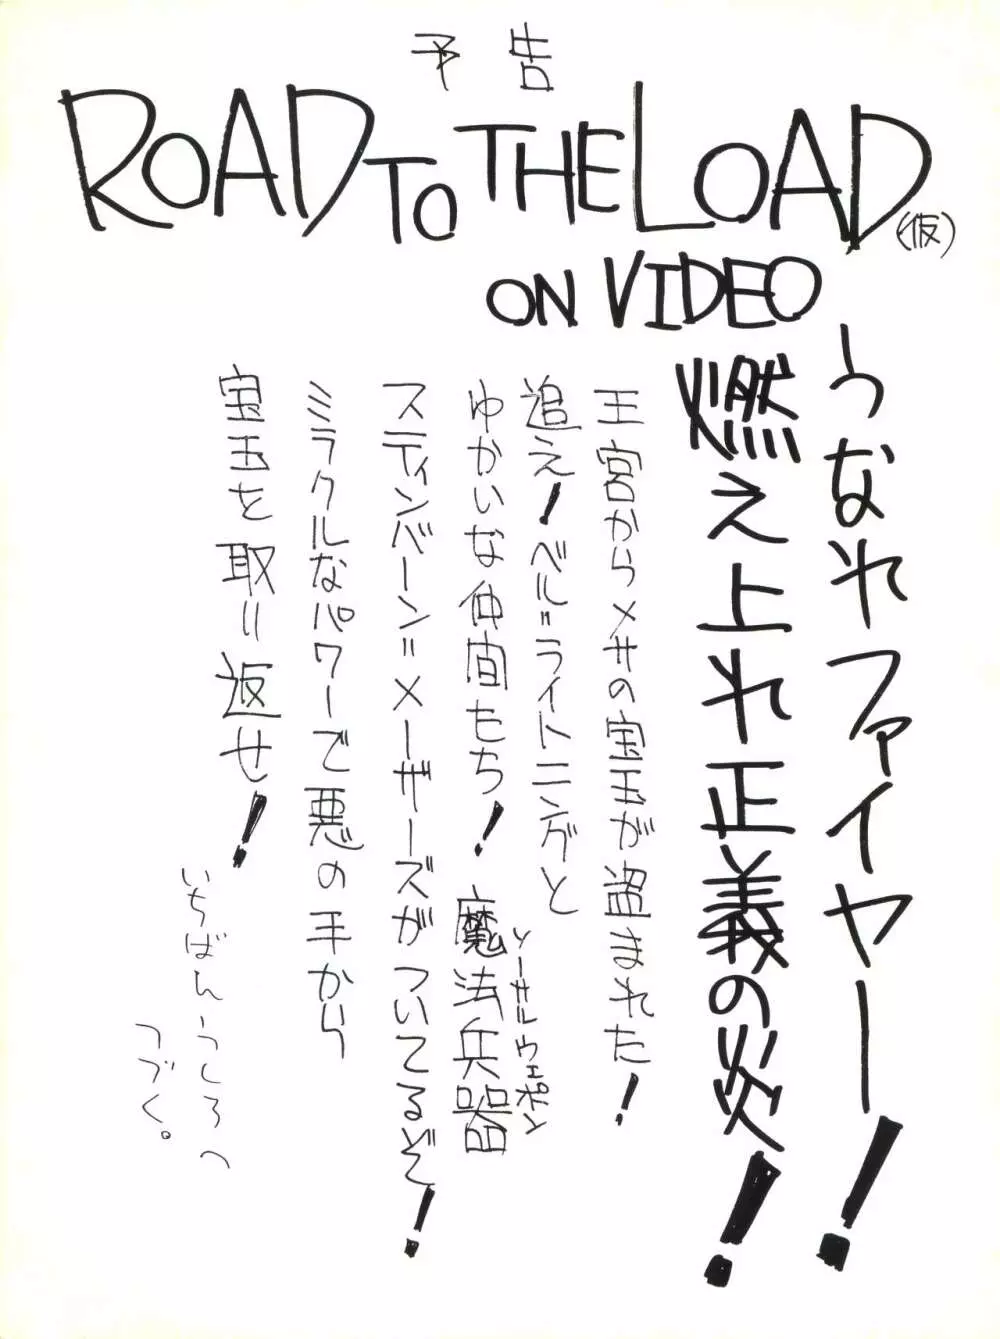 予告
ROAD TO THE LOAD
(仮)
ON VIDEO
うなれファイヤー!
燃え上れ正義の炎!
王宮からメサの宝玉が盗まれた!
追え!ベル=ライトニングと
ゆかいな仲間もち!魔法兵器
ソーサルウェポン
スティンバーン=メーザーズがついてるぞ!
ミラクルなパワーで悪の手から
宝玉を取り返せ!
いちばんうしろへ
つづく。